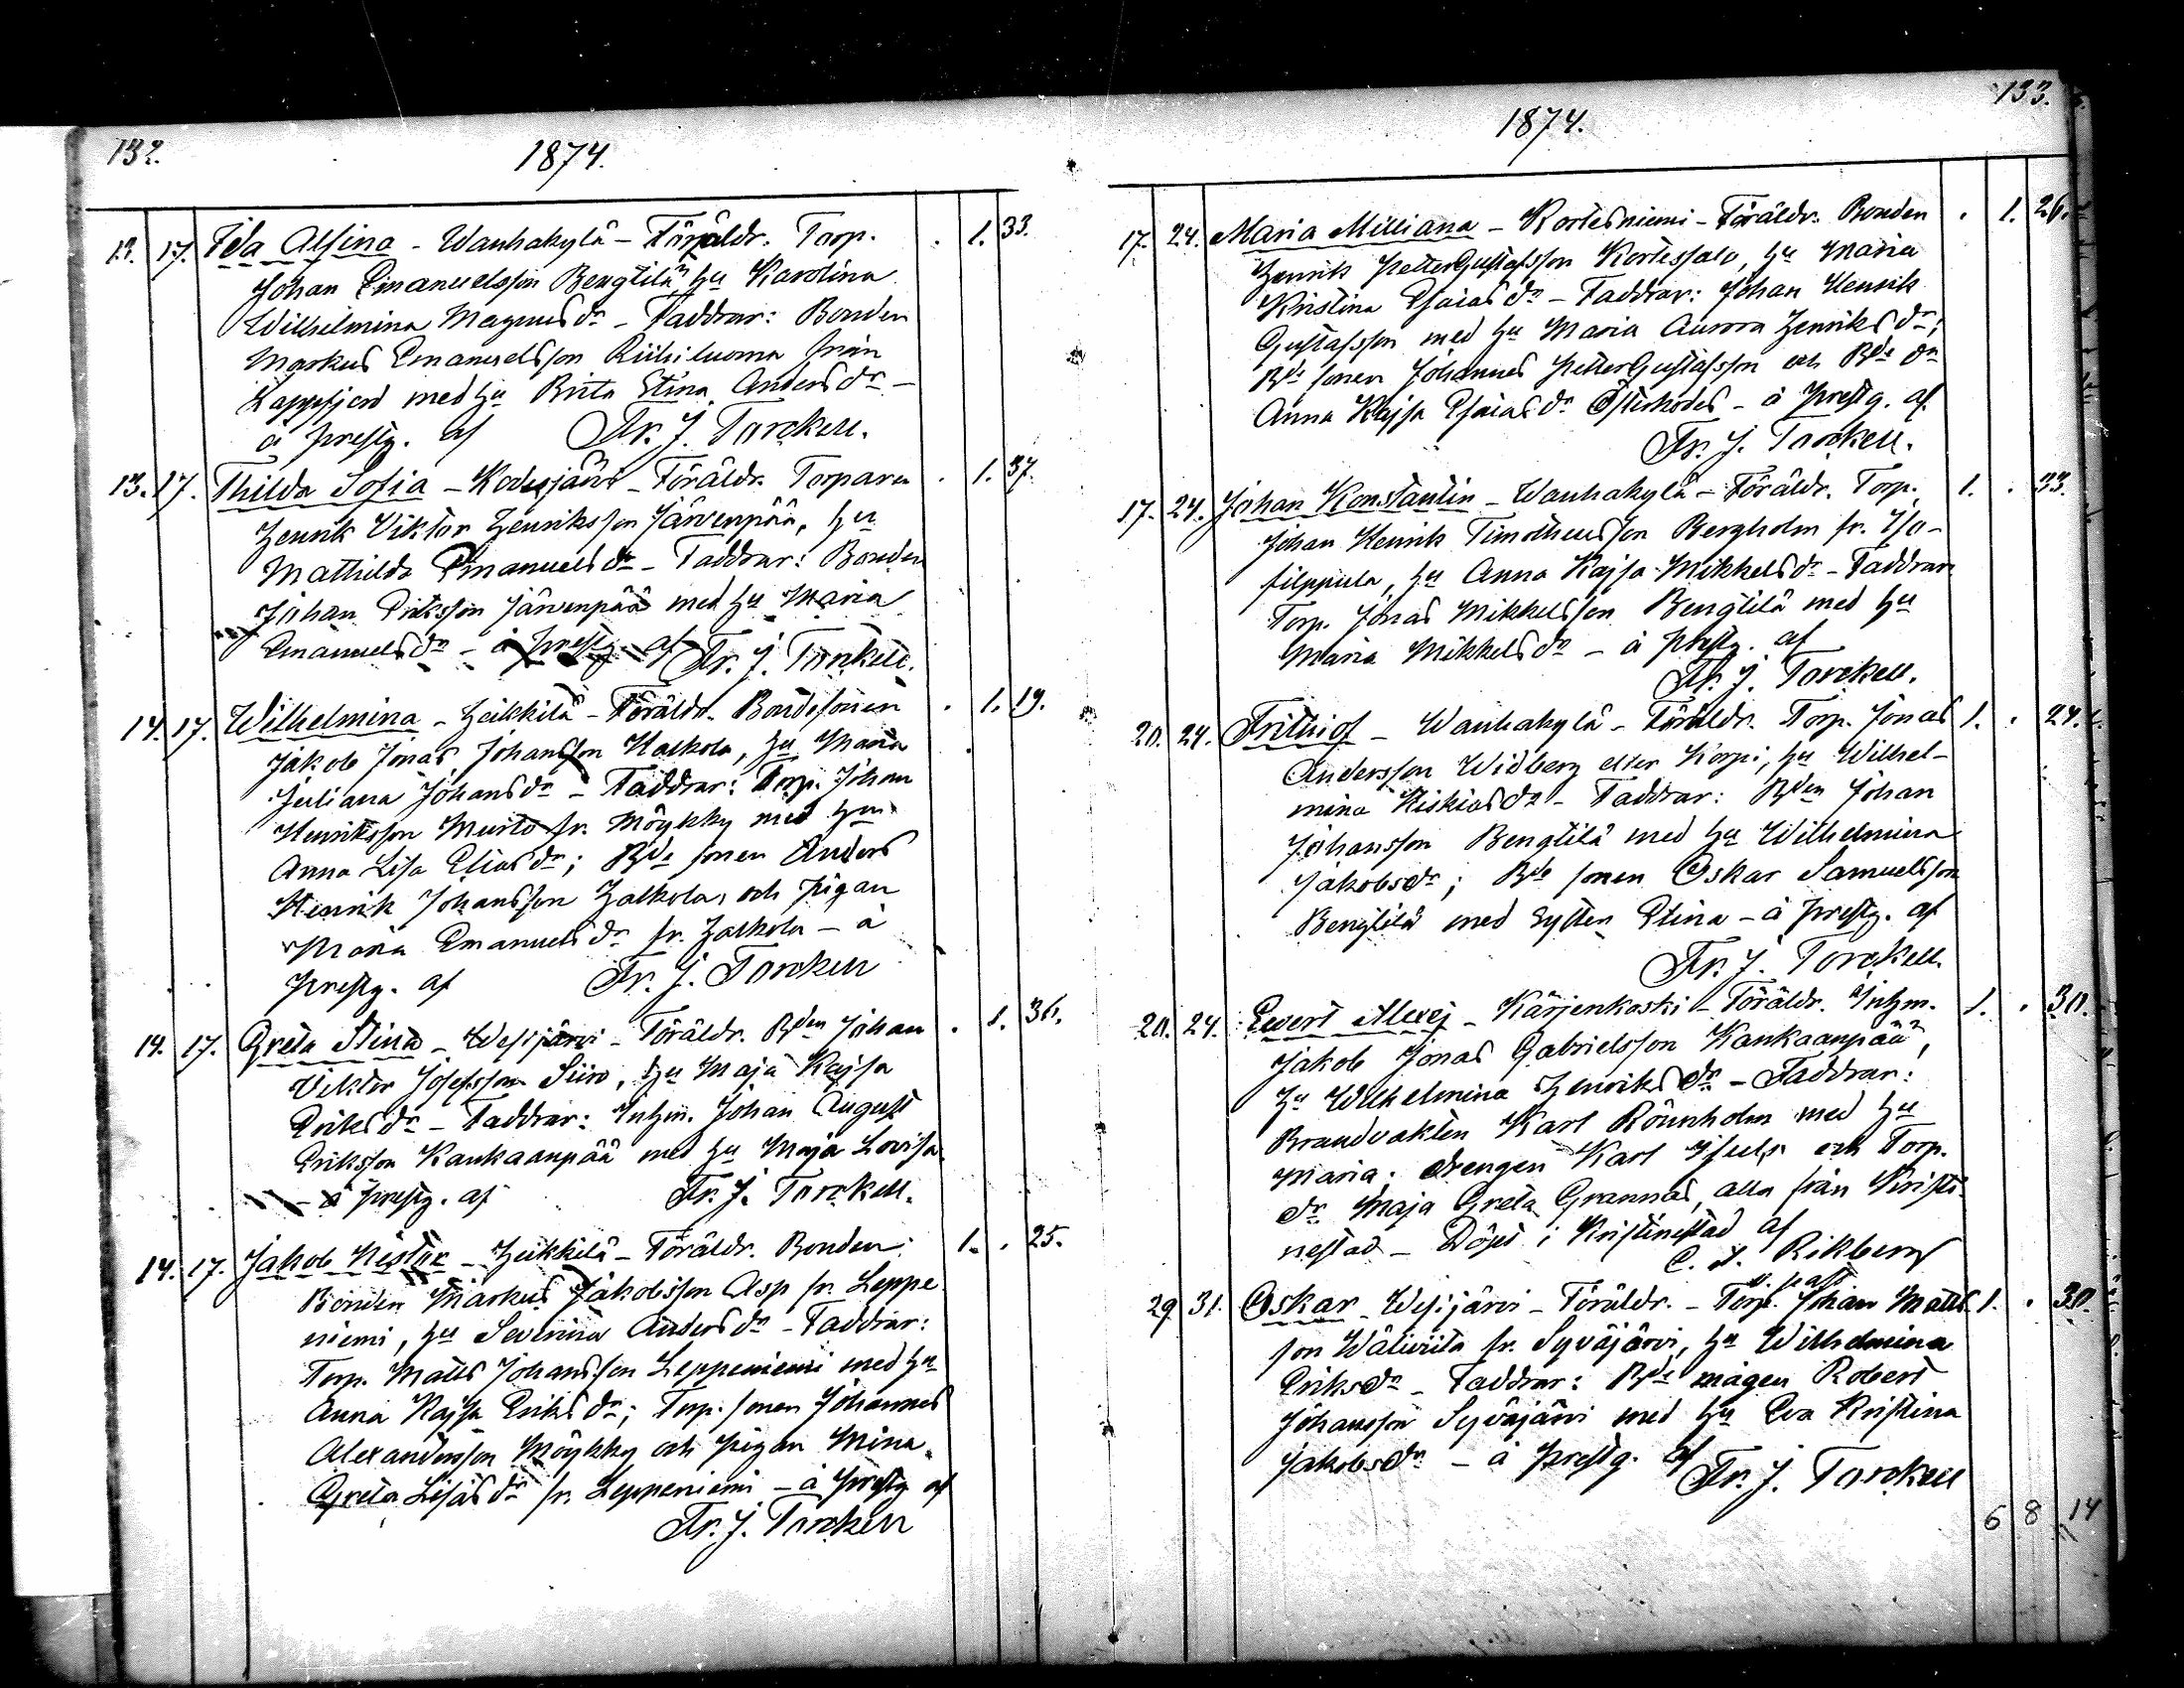 132.
1874.
13. 17. Ida Alfina - Wanhakylä - Föräldr. Torp. . 1. 33.
Johan Emanuelsson Bengtilä, hu Karolina
Wilhelmina Magnusdr - Faddrar: Bonden
Markus Emanuelsson Riihiluoma från
Lappfjerd med hu Brita Stina Andersdr -
å prestg. af Fr. J. Torckell.
13. 17. Thilda Sofia - Kodesjärvi - Föräldr. Torparen . 1. 37.
Henrik Viktor Henriksson Järvenpää, hu
Mathilda Emanuelsdr - Faddrar: Bonden
Johan Eriksson Järvenpää med hu Maria
Emanuelsdr - å prestg. af Fr. J. Torckell.
14. 17. Wilhelmina - Heikkilä - Föräldr. Bondesonen . 1. 19.
Jakob Jonas Johansson Halkola, hu Maria
Juliana Johansdr - Faddrar: Torp. Johan
Henriksson Murto fr. Möykky med hu
Anna Lisa Eliasdr; Bde sonen Anders
Henrik Johansson Halkola, och pigan
Maria Emanuelsdr fr. Halkola - å
prestg. af Fr. J. Torckell
14. 17. Greta Stina - Wesijärvi - Föräldr. Bden Johan . 1. 36.
Viktor Josefsson Siiro, hu Maja Kajsa
Eriksdr - Faddrar: Inhm. Johan August
Eriksson Kankaanpää med hu Maja Lovisa
- å prestg. af Fr. J. Torckell.
14. 17. Jakob Nestor - Heikkilä - Föräldr. Bonden 1. . 25.
Bonden Markus Jakobsson Asp fr. Leppe
niemi, hu Severina Andersdr - Faddrar:
Torp. Matts Johansson Leppeniemi med hu
Anna Kajsa Eriksdr; Torp. sonen Johannes
Alexandersson Möykky och pigan Mina
Greta Lisasdr fr. Leppeniemi - å prestg af
Fr. J. Torckell
133.
1874.
17. 24. Maria Milliana - Kortesniemi - Föräldr. Bonden . 1. 26.
Henrik Petter Gustafsson Kortessalo, hu Maria
Kristina Esaiasdr - Faddrar: Johan Henrik
Gustafsson med hu Maria Aurora Henriksdr;
Bde sonen Johannes Petter Gustafsson och Bde dn
Anna Kajsa Esaiasdr - å prestg. af
Fr. J. Torckell.
17. 24. Johan Konstantin - Wanhakylä - Föräldr. Torp. 1. . 33.
Johan Henrik Timotheusson Bergholm fr. Iso-
filppula, hu Anna Kajsa Mikkelsdr - Faddrar
Torp. Jonas Mikkelsson Bengtilä med hu
Maria Mikkelsdr - å prestg. af
Fr. J. Torckell.
20. 24. Frithiof - Wanhakylä - Föräldr. Torp. Jonas 1. . 24.
Andersson Widberg eller Korpi, hu Wilhel-
mina Hiskiasdr - Faddrar: Bden Johan
Johansson Bengtilä med hu Wilhelmina
Jakobsdr; Bde sonen Oskar Samuelsson
Bengtilä med Stina - å prestg. af
Fr. J. Torckell.
20. 24. Evert Alexej - Kärjenkoski - Föräldr. Inhm. 1. . 30.
Jakob Jonas Gabrielsson Kankaanpää,
hu Wilhelmina Henriksdr - Faddrar:
Brandvakten Karl Rönnholm med hu
Maria; drengen Karl och Torp.
dr Maja Greta Grannas, alla från Kristi-
nestad - Döpt i Kristinestad af
C. J. Rikberg
29 31. Oskar - Wesijärvi - Föräldr. - Torp. Johan Matts 1. . 30.
son Wäliviita fr. Syväjärvi, hu Wilhelmina
Eriksdr - Faddrar: Bde mågen Robert
Johansson Syväjärvi med hu Eva Kristina
Jakobsdr - å prestg. af Fr. J. Torckell
6 8 14